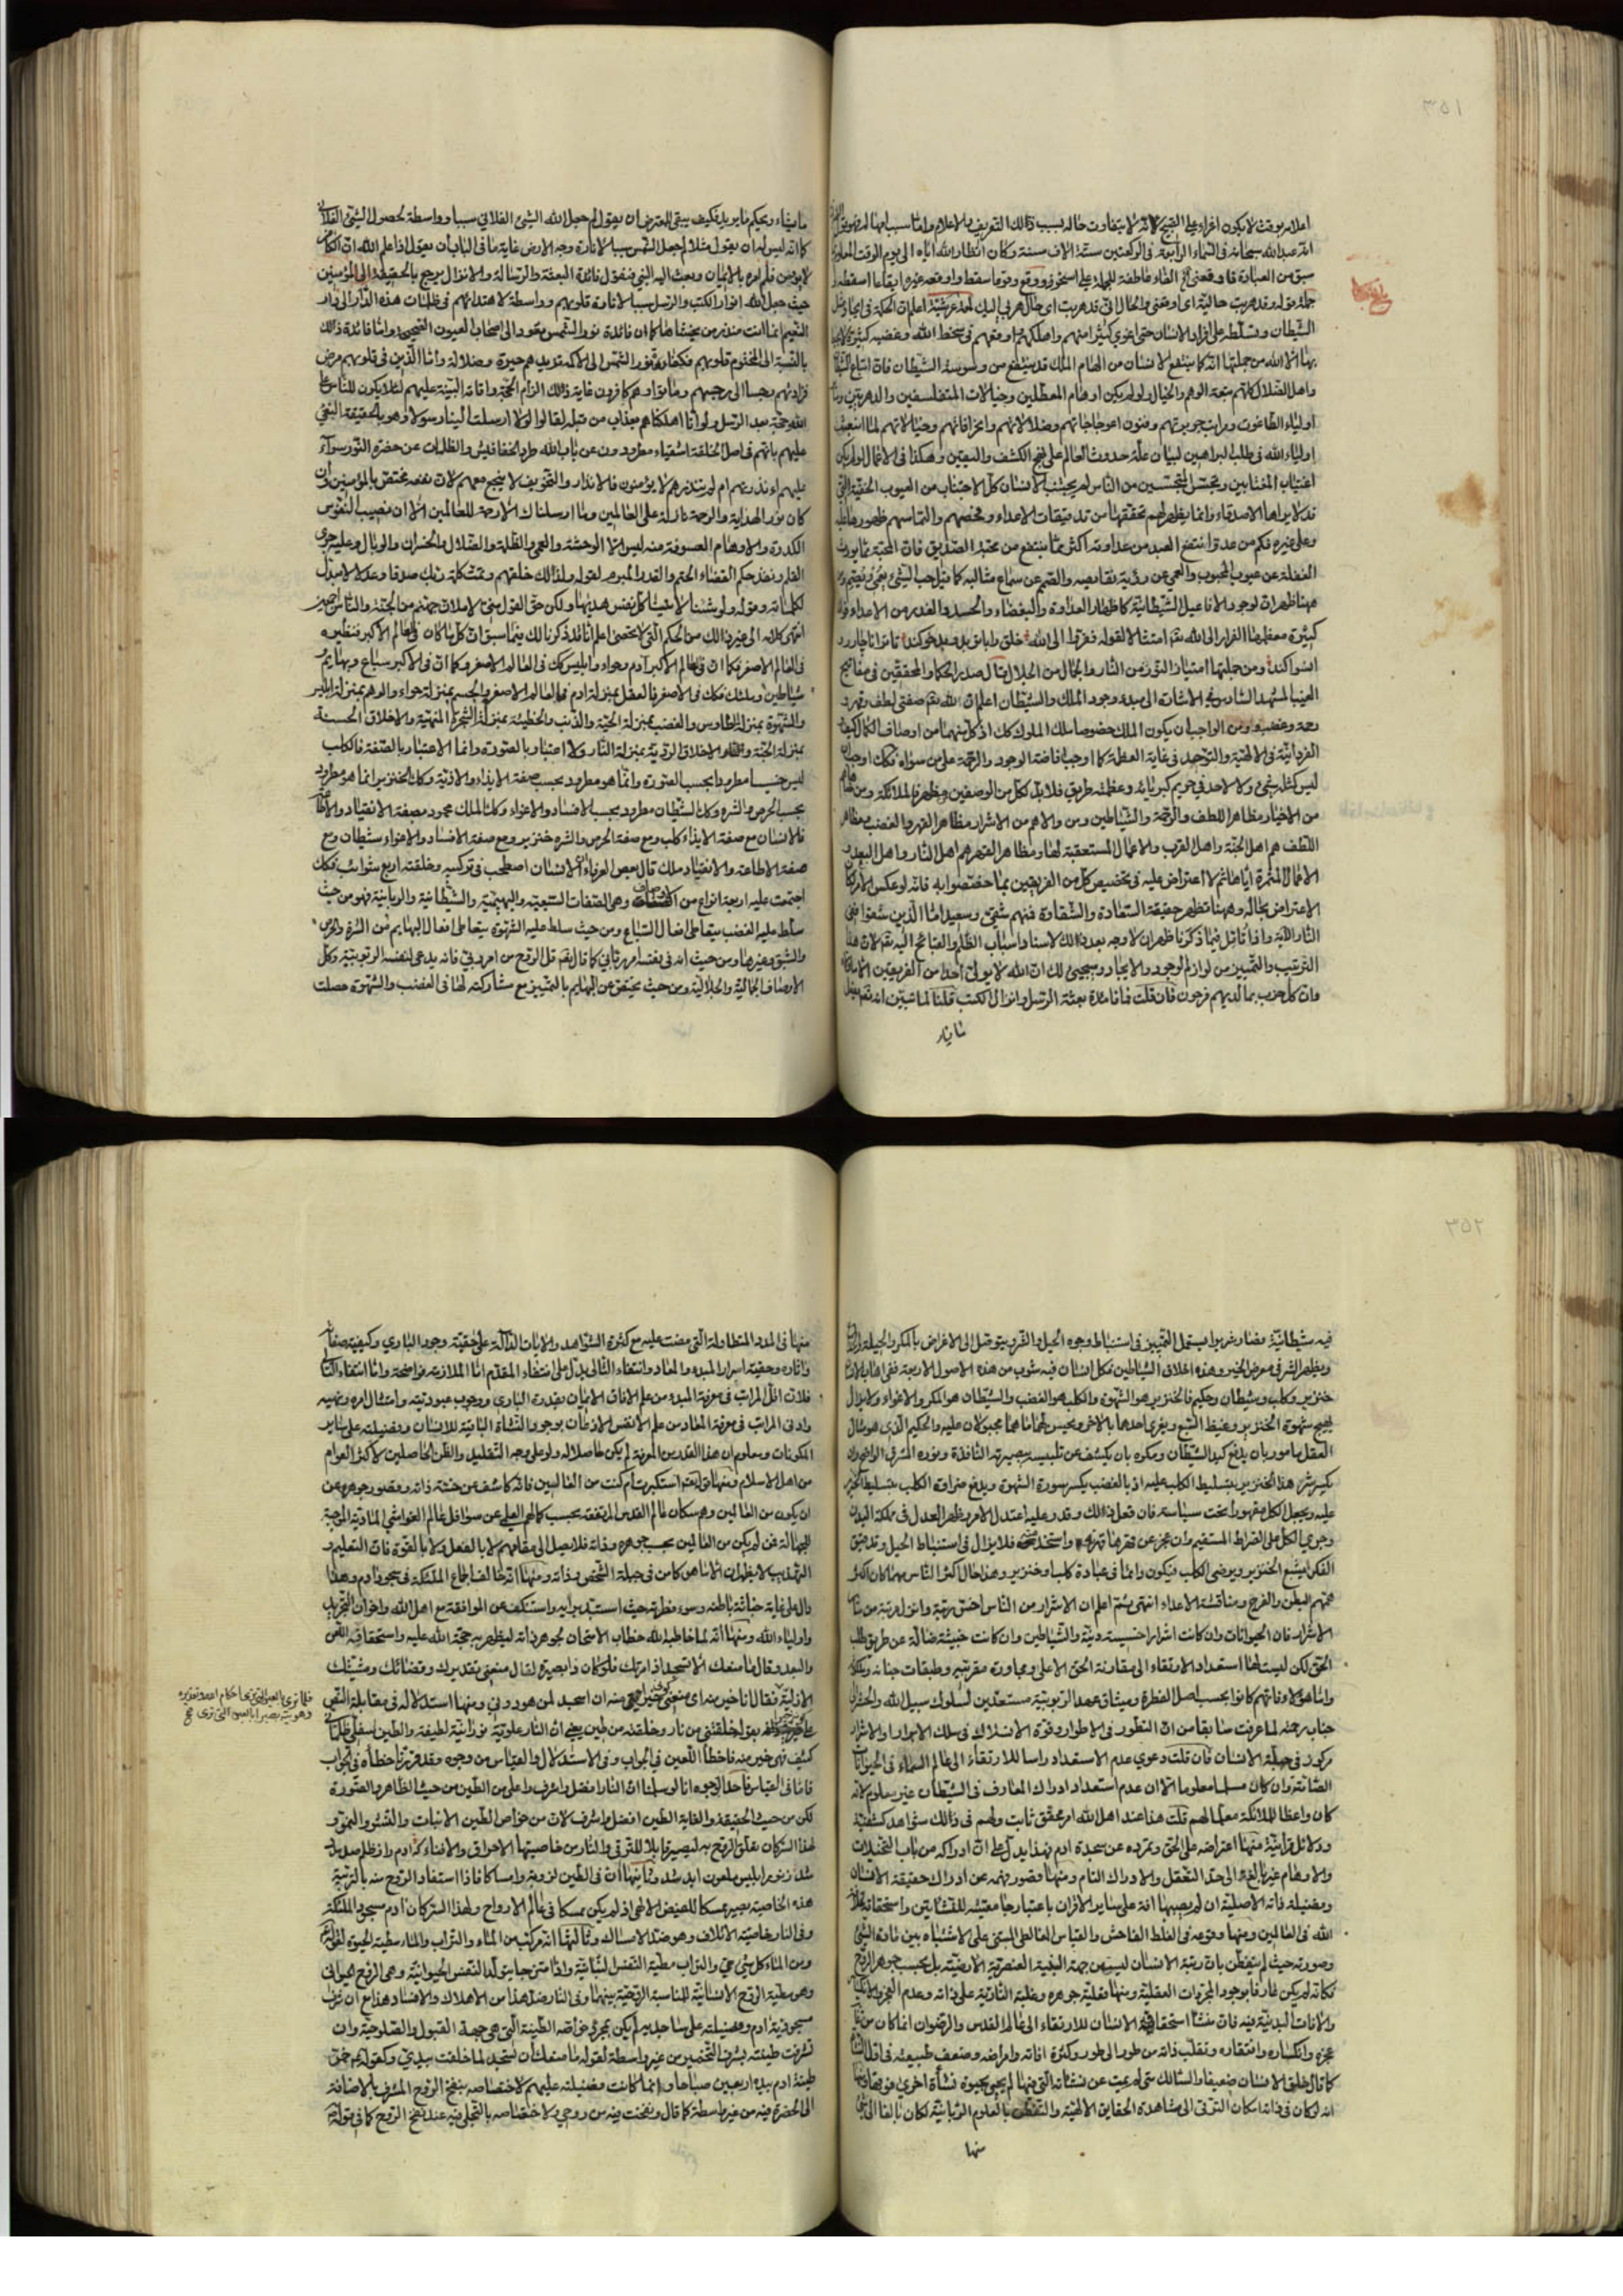 ٣٥١
اعلامه بوقت لا يكون اغراء على القبيح لانه لا يتفاوت حاله بسبب ذلك التعريف بالاعلام واما سبب
انه عبد الله سبحانه في السماء الرابعة في الركعتين ستة الاف سنة وكان انظار الله اياه الى يوم الوقت المعلوم
سبق من العبادة
الشيطان وتسلطه على افراد الانسان حتى اغوى كثيرا منهم واهلكهم واوقعهم في سخط الله وغضبه
بها الا الله من جملتها انه كما ينتفع الانسان من الهام الملك قد ينتفع من وسوسة الشيطان فان اتباع
واهل الضلال كلهم تبعة الوهم والخيال ولو لم يكن اوهام المعطلين وخيالات المتفلسفين والدهريين
اولياء الطاغوت ومراتب جربزتهم وفنون اعوجاجاتهم وضلالاتهم وانحرافاتهم وخيالاتهم لما انبعث
اولياء الله في طلب البراهين لبيان علة حدوث العالم على نهج الكشف واليقين وهكذا في الاعمال لو لم يكن
اغتياب المغتابين وتجسس المتجسسين من الناس لم يجتنب الانسان كل الاجتناب من العيوب الخفية التي
قد لا يراها الاصدقاء وانما يظهر لهم تحققها من تدقيقات الاعداء وفحصهم والتماسهم ظهورها عليه
وعلى غيره فكم من عدو انتفع العبد من عداوته اكثر مما ينتفع من محبة الصديق فان المحبة مما يورث
الغفلة عن عيوب المحبوب والعمى عن رؤية نقايصه والصمم عن سماع مثالبه كما قيل حب الشيء يعمي ويصم
فههنا ظهر ان لوجود الافاعيل الشيطانية كاظهار العداوة والبغضاء والحسد والغدر من الاعداء
كثيرة معظمها الفرار الى الله تعالى امتثالا لقوله ففروا الى الله
ومن جملتها امتياز النور من النار والجمال من الجلال قال صدر الحكماء والمحققين في مفاتيح
الغيب المشهد السادس في الاشارة الى مبدء وجود الملك والشيطان اعلم ان لله تعالى صفتي لطف وقهر و
رحمة وغضب ومن الواجب ان يكون الملك خصوصا ملك الملوك كك اذ كل منهما من اوصاف الكمال
الفردانية في الالهية والتوحد في غاية العظمة كما اوجب افاضة الوجود والرحمة على من سواه فكك اوجب ان
ليس كمثله شيء ولا لاحد في حريم كبريائه وعظمته طريق فلا بد لكل من الوصفين مظهر فالملائكة ومن
من الاخيار مظاهر اللطف والرحمة والشياطين ومن والاهم من الاشرار مظاهر القهر والغضب ومظاهر
اللطف هم اهل الجنة واهل القرب والاعمال المستعقبة لها ومظاهر القهر هم اهل النار واهل البعد و
الاعمال المثمرة اياها ثم لا اعتراض عليه في تخصيص كل من الفريقين بما خصصوا به فانه لو عكس الامر لكان
الاعتراض بحاله وههنا تظهر حقيقة السعادة والشقاوة فمنهم شقي وسعيد اما الذين شقوا ففي
النار الاية واذا تؤمل فيما ذكرنا ظهر ان لا وجه بعد ذلك لاسناد اسباب الظلم والقبائح اليه تعالى لان هذا
الترتيب والتمييز من لوازم الوجود والايجاد وسيجيء لك ان الله لا يولي احدا من الفريقين
وان كل حزب بما لديهم فرحون فان قلت فما فائدة بعثة الرسل وانزال الكتب قلنا لما تبين انه تعالى يفعل
ما يشاء
ما يشاء ويحكم ما يريد فكيف يبقى للمعترض ان يقول لم جعل الله الشيء الفلاني سببا وواسطة لحصول الشيء الفلاني
كما انه ليس له ان يقول مثلا لم جعل الشمس سببا لانارة وجه الارض غاية ما في الباب ان يقول اذا علم الله ان الكافر
لا يؤمن فلم امره بالايمان وبعث اليه النبي فنقول فائدة البعثة والرسالة والانزال يرجع بالحقيقة الى المؤمنين
حيث جعل الله انوار الكتب والرسل سببا لانارة قلوبهم وواسطة لاهتدائهم في ظلمات هذه الدار الى دار
النعيم انما انت منذر من يخشاها كما ان فائدة نور الشمس يعود الى اصحاب العيون الصحيحة واما فائدة ذلك
بالنسبة الى المختوم قلوبهم فكفائدة نور الشمس الى الاكمه تزيدهم حيرة وضلالة واما الذين في قلوبهم مرض
فزادتهم رجسا الى رجسهم وماتوا وهم كافرون غاية ذلك الزام الحجة واقامة البينة عليهم لئلا يكون للناس على
الله حجة بعد الرسل ولو انا اهلكناهم بعذاب من قبله لقالوا لولا ارسلت الينا رسولا وهو بالحقيقة النعي
عليهم بانهم في اصل الخلقة اشقياء مطرودون عن باب الله طرد الخفافيش والظلمات عن حضرة النور سواء
عليهم ءانذرتهم ام لم تنذرهم لا يؤمنون فالانذار والتخويف لا ينجع معهم لان نفعه مختص بالمؤمنين وان
كان نور الهداية والرحمة نازلة على العالمين وما ارسلناك الا رحمة للعالمين الا ان نصيب النفوس
الكدرة والاوهام المعسوفة منه ليس الا الوحشة والعمى والظلمة والضلال والخسران والوبال وعليه جرى
القلم ونفذ حكم القضاء الحتم والقدر المبرم لقوله ولذلك خلقهم وتمت كلمة ربك صدقا وعدلا لا مبدل
لكلماته وقوله ولو شئنا لاتينا كل نفس هديها ولكن حق القول مني لاملان جهنم من الجنة والناس اجمعين
انتهى كلامه الى غير ذلك من الحكم التي لا تحصى اعلم انا قد ذكرنا لك فيما سبق ان كل ما كان في العالم الاكبر فنظيره
في العالم الاصغر فكما ان في العالم الاكبر آدم وحواء وابليس كك في العالم الاصغر وكما ان في الاكبر سباع وبهايم و
شياطين وملئك فكك في الاصغر فالعقل بمنزلة ادم في العالم الاصغر والجسم بمنزلة حواء والوهم بمنزلة ابليس
والشهوة بمنزلة الطاوس والغضب بمنزلة الحية والذنب والخطيئة بمنزلة الشجرة المنهية والاخلاق الحسنة
بمنزلة الجنة والاخلاق الردية بمنزلة النار ولا اعتبار بالصورة وانما الاعتبار بالصفة فالكلب
ليس خسيسا مطرودا بحسب الصورة وانما هو مطرود بحسب صفة الايذاء والاذية وكك الخنزير انما هو مطرود
بحسب الحرص والشره وكك الشيطان مطرود بحسب الافساد والاغواء وكك الملك محمود بصفة الانقياد والاطاعة
فالانسان مع صفة الايذاء كلب ومع صفة الحرص والشره خنزير ومع صفة الافساد والاغواء شيطان ومع
صفة الاطاعة والانقياد ملك قال بعض العرفاء ان الانسان اصطحب في تركيبه وخلقته اربع شوائب فكك
اجتمعت عليه اربعة انواع من الاوصاف وهي الصفات السبعية والبهيمية والشيطانية والربانية فهو من حيث
سلط عليه الغضب يتعاطى افعال السباع ومن حيث سلط عليه الشهوة يتعاطى افعال البهايم من الشره والحرص
والشبق وغيرها ومن حيث انه في نفسه امر رباني كما قال تعالى قل الروح من امر ربي فانه يدعي لنفسه الربوبية وكل
الاوصاف الجمالية والجلالية ومن حيث يختص عن البهايم بالتمييز مع مشاركته لها في الغضب والشهوة حصلت
٣٥٢
فيه شيطانية فصار شريرا يستعمل التمييز في استنباط وجوه الحيل والشر ويتوصل الى الاغراض بالمكر والحيلة
ويظهر الشر في معرض الخير وهذه اخلاق الشياطين فكل انسان فيه شوب من هذه الاصول الاربعة
خنزير وكلب وشيطان وحكيم فالخنزير هو الشهوة والكلب هو الغضب والشيطان هو المكر والاغواء ولا يزال
يهيج شهوة الخنزير وغيظ السبع ويغري احدهما بالاخر ويحسن لهما ما هما مجبولان عليه والحكيم الذي هو مثال
العقل مامور بان يدفع كيد الشيطان ومكره بان يكشف عن تلبيسه ببصيرته النافذة ونوره المشرق الواضح وان
يكسر شره هذا الخنزير بتسليط الكلب عليه اذ بالغضب يكسر سورة الشهوة ويدفع ضراوة الكلب بتسليط الخنزير
عليه ويجعل الكل مقهورا تحت سياسته فان فعل ذلك وقدر عليه اعتدل الامر وظهر العدل في مملكة البدن
وجرى الكل على الصراط المستقيم وان عجز عن قهرها قهروه واستخدموه فلا يزال في استنباط الحيل وتدقيق
الفكر ليشبع الخنزير ويرضي الكلب فيكون دائما في عبادة كلب او خنزير وهذا حال اكثر الناس مهما كان اكثر
همتهم البطن والفرج ومناقشة الاعداء انتهى ثم اعلم ان الاشرار من الناس اخس رتبة وانزل مرتبة من ساير
الاشرار فان الحيوانات وان كانت اشرارا خسيسة دنية والشياطين وان كانت خبيثة ضالة عن طريق طلب
الحق لكن ليست لها استعداد الارتقاء الى مقارنة الحق الاعلى ومجاورة مقربيه وطبقات جنانه
واما هؤلاء فانهم كانوا بحسب اصل الفطرة وميثاق عهد الربوبية مستعدين لسلوك سبيل الله
جناب رحمته لما عرفت سابقا من ان التطور في الاطوار وقوة الانسلاك في سلك الابرار والاشرار
مركوز في جبلة الانسان فان قلت دعوى عدم الاستعداد راسا للارتقاء الى عالم السماء في الحيوانات
الصامتة وان كان مسلما معلوما الا ان عدم استعداد ادراك المعارف في الشيطان غير معلوم لانه
كان واعظا للملائكة معلما لهم قلت هذا عند اهل الله امر محقق ثابت ولهم في ذلك شواهد كشفية
ودلائل قرانية منها اعتراضه على الحق وتمرده عن سجدة ادم فهذا يدل على ان ادراكه من باب التخيلات
والاوهام غير بالغة الى حد التعقل والادراك التام ومنها قصور فهمه عن ادراك حقيقة الانسان
الله في العالمين ومنها وقوعه في الغلط الفاحش والقياس المغالطي المبتني على الاشتباه بين مادة الشيء
وصورته حيث لم يتفطن بان رتبة الانسان ليس من جهة البنية العنصرية الارضية بل بحسب جوهر الروح
فكانه لم يكن عارفا بوجود المجردات العقلية ومنها فعلية جوهره وغلبة النارية على ذاته وعدم العجز
والافات البدنية فيه فان منشا استحقاق الانسان للارتقاء الى عالم القدس والرضوان انما كان من
عجزه وانكساره وافتقاره وتقلب ذاته من طور الى طور وكثرة افاته وامراضه وضعف طبيعته
كما قال خلق الانسان ضعيفا والسالك متى لم يمت عن نشاته التي فيها لم يحي بحيوة نشأة اخرى فوقها
انه لو كان في ذاته امكان الترقي الى مشاهدة الحقايق الالهية والتفطن بالعلوم الربانية لكان بالغا الى
منها
منها في المدد المتطاولة التي مضت عليه مع كثرة الشواهد والايات الدالة على حقية وجود الباري وكيفية صفاته
واثاره وحقية اسرار المبدء والمعاد وانتفاء التالي يدل على انتفاء المقدم اما الملازمة فواضحة واما انتفاء التالي
فلان اقل المراتب في معرفة المبدء من علم الافاق الايمان بقدرة الباري ووجوب عبوديته وامتثال امره ونهيه
وادنى المراتب في معرفة المعاد من علم الانفس الاذعان بوجود النشاة الباقية للانسان وفضيلته على ساير
المكونات ومعلوم ان هذا القدر من المعرفة لم يكن حاصلا له ولو على وجه التقليد والظن الحاصلين لاكثر العوام
من اهل الاسلام ومنها قوله تعالى استكبرت ام كنت من العالين فانه كاشف عن خسة ذاته وقصور جوهره عن
ان يكون من العالين وهم سكان عالم القدس المرتفعة بحسب كمالهم العقلي عن سوافل عالم الغواشي المادية الموجبة
للجهالة فمن لم يكن من العالين بحسب جوهره وذاته فلا يصل الى مقامهم لا بالفعل ولا بالقوة فان التعليم و
التهذيب لا يظهران الا ما هو كامن في جبلة الشخص وذاته ومنها انه خالف اجماع الملئكة في سجود ادم وهذا
دال على غاية خباثة باطنه وسوء فطرته حيث استبد برايه واستنكف عن الموافقة مع اهل الله واخوان التجريد
واولياء الله ومنها انه لما خاطبه الله خطاب الامتحان لجوهر ذاته ليظهر به حجة الله عليه واستحقاقه اللعن
والبعد وقال ما منعك الا تسجد اذ امرتك فلو كان ذا بصيرة لقال منعني تقديرك وقضائك ومشيتك
الازلية فقال انا خير منه اي منعني كوني خيرا منه ان اسجد لمن هو دوني ومنها استدلاله في مقابلة النص
بقوله خلقتني من نار وخلقته من طين يعني ان النار علوية نورانية لطيفة والطين سفلي ظلماني
كثيف فهي خير منه فاخطأ اللعين في الجواب وفي الاستدلال والقياس من وجوه وقد قررنا خطأه في الجواب
فاما في القياس فاحد الوجوه انا لو سلمنا ان النار افضل واشرف واعلى من الطين من حيث الظاهر والصورة
لكن من حيث الحقيقة والغاية الطين افضل واشرف لان من خواص الطين الانبات والنشو والنمو و
لهذا السر كان تعلق الروح به ليصير قابلا للترقي والنار من خاصيتها الاحراق والافناء
وثانيها ان في الطين لزوجة وامساكا فاذا استفاد الروح منه بالتربية
هذه الخاصية يصير ممسكا للفيض الالهي اذ لم يكن ممسكا في عالم الارواح ولهذا السر كان ادم مسجود الملئكة
وفي النار خاصية الاتلاف وهو ضد الامساك وثالثها انه مركب من الماء والتراب والماء مطية الحيوة لقوله
ومن الماء كل شيء حي والتراب مطية النفس النباتية واذا امتزجا يتولد النفس الحيوانية وهي الروح الحيواني
وهو مطية الروح الانسانية للمناسبة الروحية بينهما وفي النار ضد هذا من الاهلاك والافساد هذا مع ان شرف
مسجودية ادم وفضيلته على ساجديه لم يكن بمجرد خواصه الطينة التي هي جهة القبول والصلوحية وان
تشرفت طينته بشرف التخمير من غير واسطة لقوله ما منعك ان تسجد لما خلقت بيدي وكقوله خمر
طينة ادم بيده اربعين صباحا وانما كانت فضيلته عليهم لاختصاصه بنفخ الروح المشرف بالاضافة
الى الحضرة فيه من غير واسطة كما قال ونفخت فيه من روحي ولاختصاصه بالتجلي فيه عند نفخ الروح كما في قوله